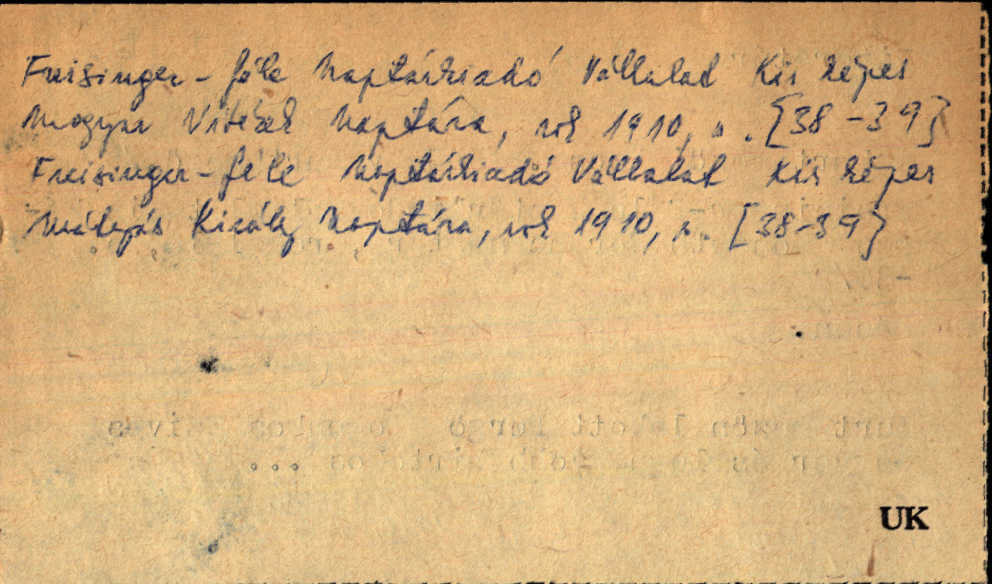 Freisinger-féle Naptárkiadó Vállalat Kis képes
Magyar Vitézek Naptára, rok 1910, s. [38-39]
Freisinger-féle Naptárkiadó Vállalat Kis képes
Mátyás Király Naptára, rok 1910, s. [38-39]
UK